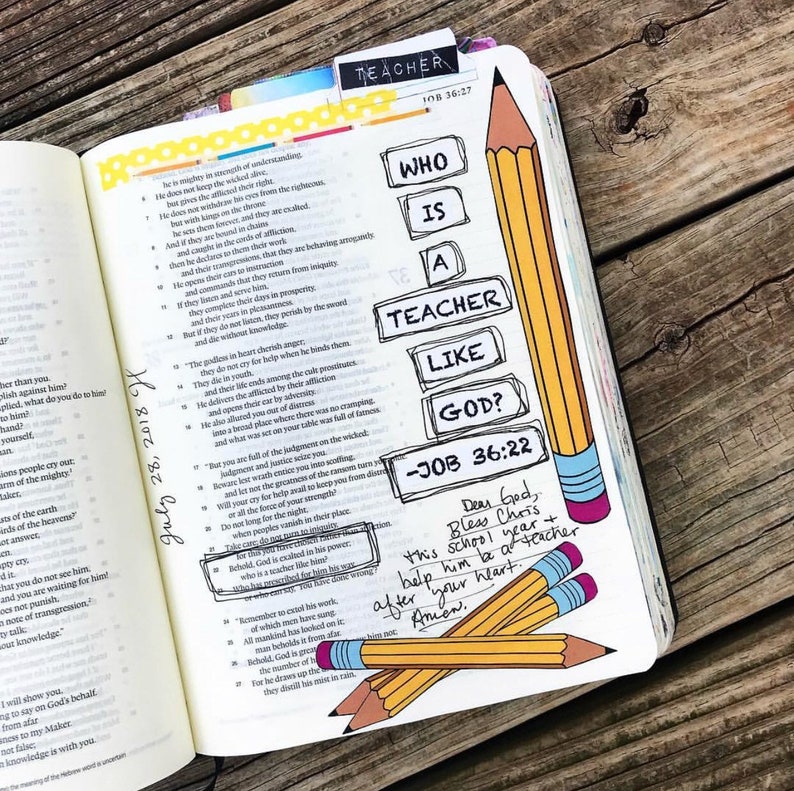 TEACHER
JOB 36:27
he is mighty in strength of understanding.
6 He does not keep the wicked alive,
but gives the afflicted their right.
7 He does not withdraw his eyes from the righteous,
but with kings on the throne
he sets them forever, and they are exalted.
8 And if they are bound in chains
and caught in the cords of affliction,
9 then he declares to them their work
and their transgressions, that they are behaving arrogantly.
10 He opens their ears to instruction
and commands that they return from iniquity.
11 If they listen and serve him,
they complete their days in prosperity,
and their years in pleasantness.
12 But if they do not listen, they perish by the sword
and die without knowledge.
13 “The godless in heart cherish anger;
they do not cry for help when he binds them.
14 They die in youth,
and their life ends among the cult prostitutes.
15 He delivers the afflicted by their affliction
and opens their ear by adversity.
16 He also allured you out of distress
into a broad place where there was no cramping,
and what was set on your table was full of fatness.
17 “But you are full of the judgment on the wicked;
judgment and justice seize you.
18 Beware lest wrath entice you into scoffing,
and let not the greatness of the ransom turn you
19 Will your cry for help avail to keep you from
or all the force of your strength?
20 Do not long for the night,
when peoples vanish in their place.
21 Take care; do not turn to iniquity,
for this you have chosen rather than
22 Behold, God is exalted in his power;
who is a teacher like him?
23 Who has prescribed for him his way,
or who can say, ‘You have done wrong’?
24 “Remember to extol his work,
of which men have sung.
25 All mankind has looked on it;
man beholds it from afar.
26 Behold, God is great, him not;
the number of
27 For he draws up the
they distill his mist in rain,
WHO
IS
A
TEACHER
LIKE
GOD?
-JOB 36:22
Dear God,
Bless Chris
this school year +
help him be a teacher
after your heart.
Amen.
July 28, 2018
ther than you.
plish against him?
plied, what do you do to him?
to him?
hand?
yourself,
an.
ions people cry out;
arm of the mighty.
aker,
sts of the earth
birds of the heavens?’
not answer,
en.
cry,
ed it.
that you do not see him,
and you are waiting for him!
does not punish,
note of transgression,
ty talk;
out knowledge.”
I will show you,
ng to say on God's behalf.
from afar
sness to my Maker.
not false;
n knowledge is with you.
the meaning of the Hebrew word is uncertain